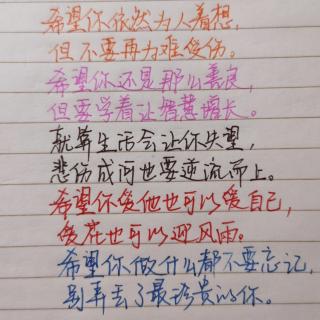 希望你依然为人着想,
但不要再为难受伤。
希望你还是那么善良,
但要学着让智慧增长。
就算生活会让你失望,
悲伤成河也要逆流而上。
希望你爱他也可以爱自己,
爱花也可以迎风雨。
希望你做什么都不要忘记,
别弄丢了最珍贵的你。